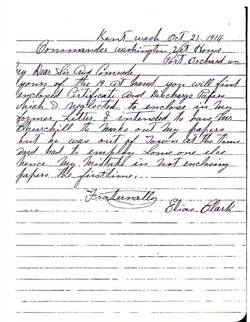 Kent Wash Oct 21, 1914
Commander Washington Vet Home
Port Orchard Wn
My Dear Sir and Comrade
yours of the 19 at hand you will find
enclosed Certificate and Discharge Papers
which I neglected to enclose in my
former Letter. I intended to have Mr
Churchill to make out my papers
but he was out of Town at the time
and had to employ some one else
hence My Mistake in Not enclosing
papers the first time.
Fraternally
Elias Clark